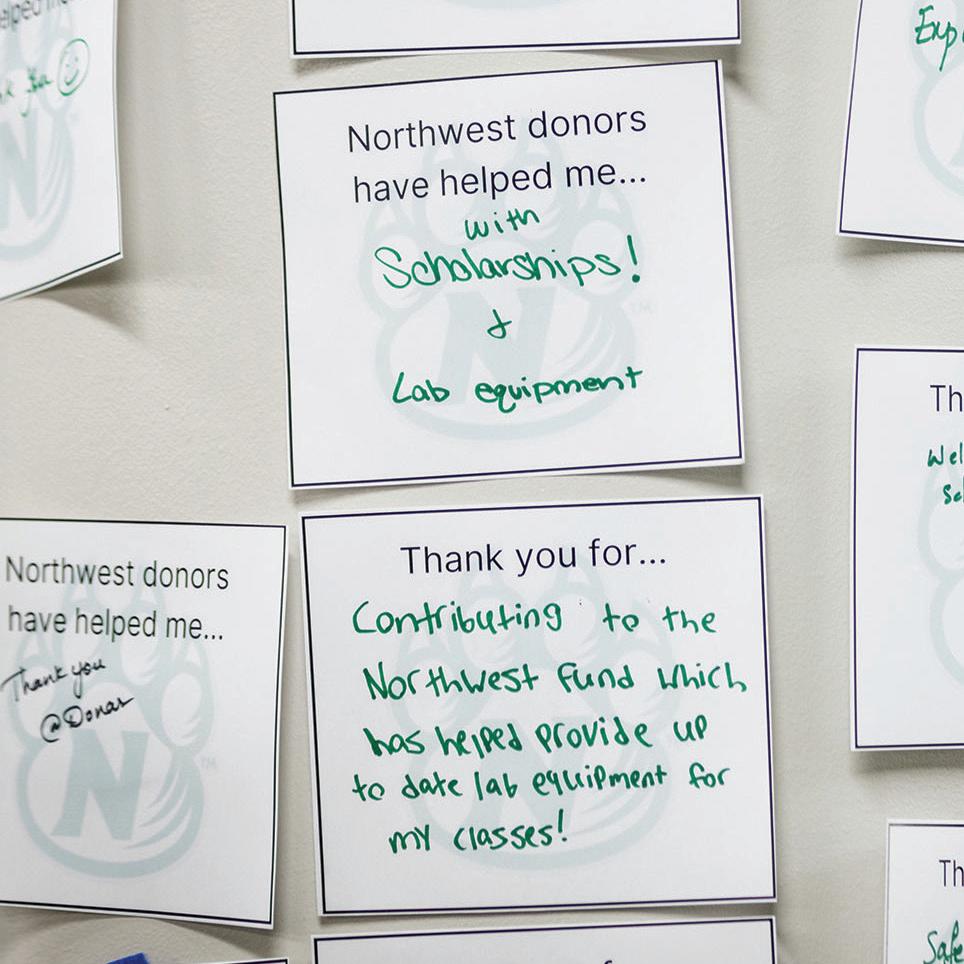 Northwest donors
have helped me...
with
Scholarships!
&
Lab equipment
Northwest donors
have helped me...
Thank you
@Donar
Thank you for...
Contributing to the
Northwest Fund which
has helped provide up
to date lab equipment for
my classes!
Exp
Th
Wel
Th
Safe
N
N
N
TM
TM